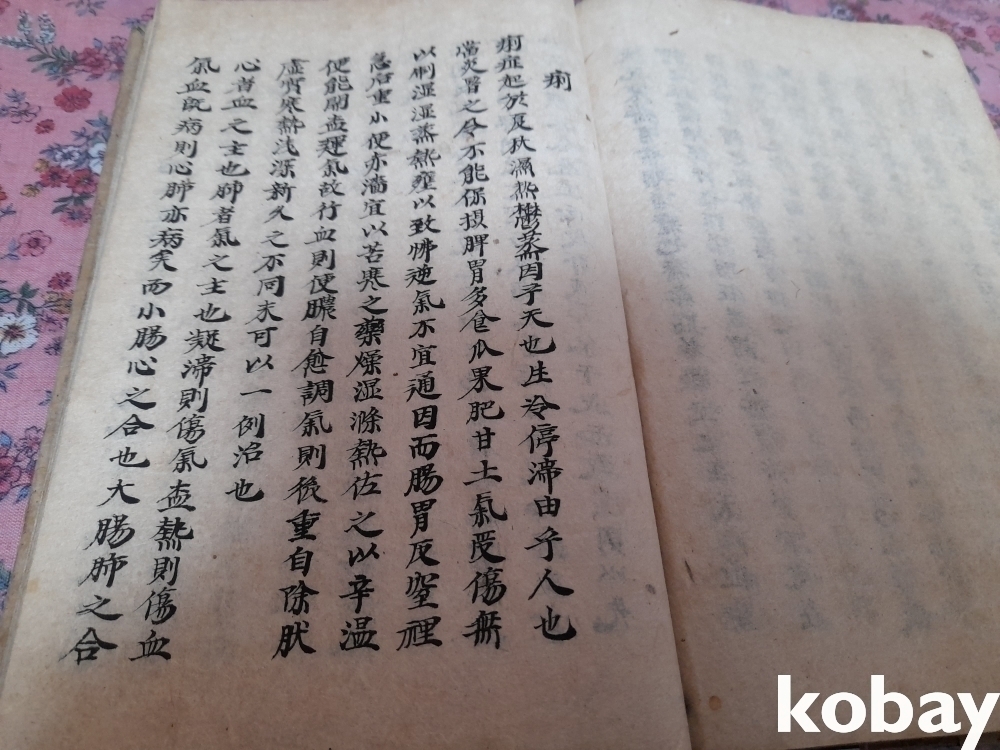 痢
痢症起於夏秋濕熱鬱蒸因乎天也生冷停滯由乎人也
當炎暑之令不能保攝脾胃多食瓜果肥甘土氣受傷無
以制濕濕蒸熱壅以致怫逆氣不宜通因而腸胃反窒裡
急后重小便亦濇宜以苦寒之藥燥濕滌熱佐之以辛温
便能開盉運氣故行血則便膿自愈調氣則後重自除肰
虛實寒熱浅深新久之不同未可以一例治也
心者血之主也肺者氣之主也凝滯則傷氣盉熱則傷血
氣血既病則心肺亦病矣而小腸心之合也大腸肺之合
kobay